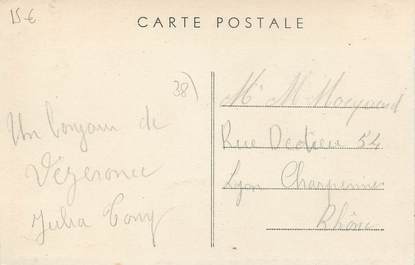 15€
CARTE POSTALE
38)
Un bonjour de
Vézeronce
Julia Tony
Mr M
Rue Dedieu 54
Lyon Charpennes
Rhône